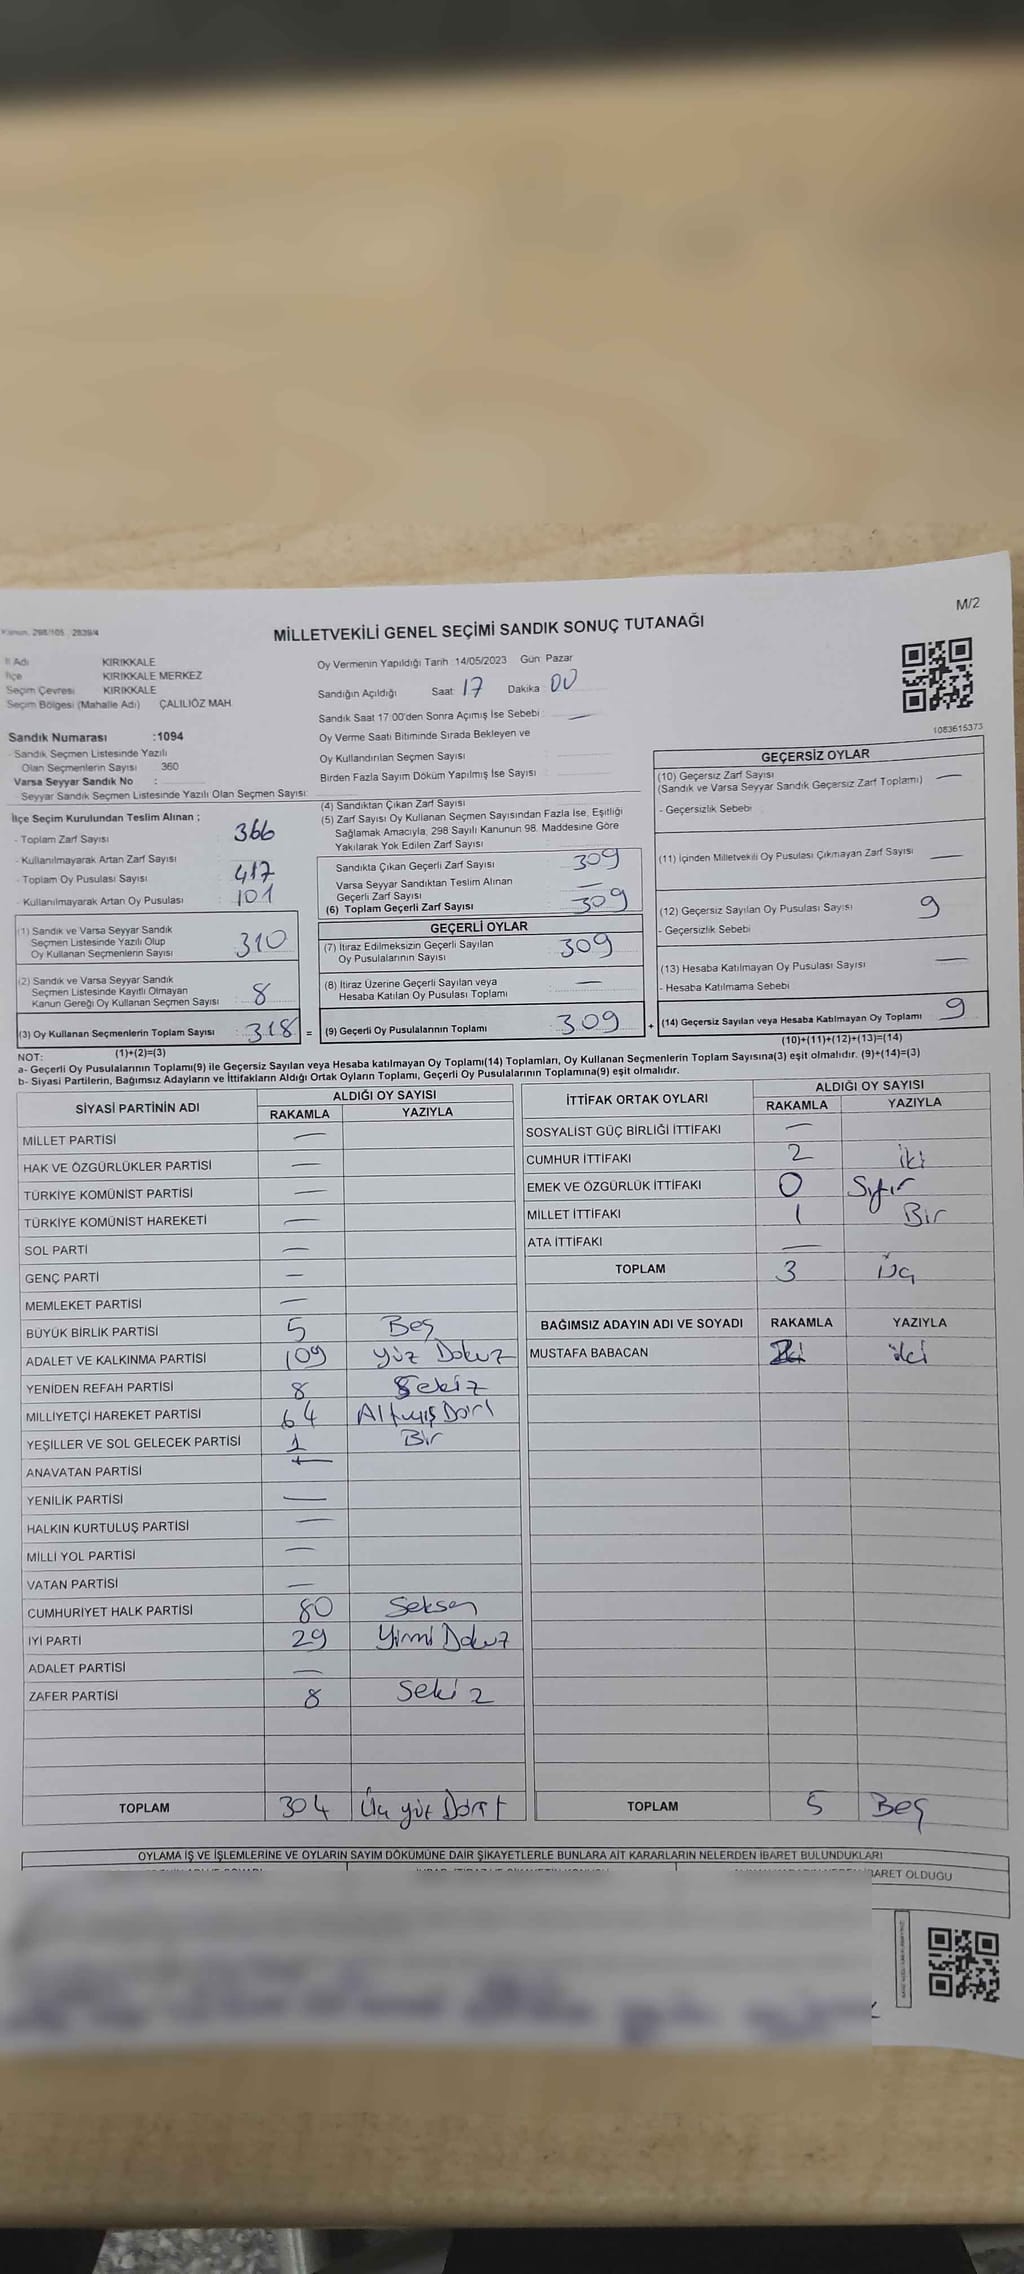 Kanun: 298/105 , 2839/4
M/2
MİLLETVEKİLİ GENEL SEÇİMİ SANDIK SONUÇ TUTANAĞI
İl Adı KIRIKKALE
İlçe KIRIKKALE MERKEZ
Seçim Çevresi KIRIKKALE
Seçim Bölgesi (Mahalle Adı) ÇALILIÖZ MAH.
Sandık Numarası :1094
- Sandık Seçmen Listesinde Yazılı
Olan Seçmenlerin Sayısı 360
Varsa Seyyar Sandık No :
Seyyar Sandık Seçmen Listesinde Yazılı Olan Seçmen Sayısı:
İlçe Seçim Kurulundan Teslim Alınan ;
- Toplam Zarf Sayısı 366
- Kullanılmayarak Artan Zarf Sayısı
- Toplam Oy Pusulası Sayısı 417
- Kullanılmayarak Artan Oy Pusulası 101
(1) Sandık ve Varsa Seyyar Sandık
Seçmen Listesinde Yazılı Olup
Oy Kullanan Seçmenlerin Sayısı 310
(2) Sandık ve Varsa Seyyar Sandık
Seçmen Listesinde Kayıtlı Olmayan
Kanun Gereği Oy Kullanan Seçmen Sayısı 8
(3) Oy Kullanan Seçmenlerin Toplam Sayısı : 318 =
(1)+(2)=(3)
Oy Vermenin Yapıldığı Tarih :14/05/2023 Gün: Pazar
Sandığın Açıldığı Saat: 17 Dakika: 00
Sandık Saat 17:00'den Sonra Açılmış İse Sebebi : —
Oy Verme Saati Bitiminde Sırada Bekleyen ve
Oy Kullandırılan Seçmen Sayısı :
Birden Fazla Sayım Döküm Yapılmış İse Sayısı :
(4) Sandıktan Çıkan Zarf Sayısı
(5) Zarf Sayısı Oy Kullanan Seçmen Sayısından Fazla İse, Eşitliği
Sağlamak Amacıyla, 298 Sayılı Kanunun 98. Maddesine Göre
Yakılarak Yok Edilen Zarf Sayısı
Sandıkta Çıkan Geçerli Zarf Sayısı : 309
Varsa Seyyar Sandıktan Teslim Alınan
Geçerli Zarf Sayısı : —
(6) Toplam Geçerli Zarf Sayısı : 309
GEÇERLİ OYLAR
(7) İtiraz Edilmeksizin Geçerli Sayılan
Oy Pusulalarının Sayısı : 309
(8) İtiraz Üzerine Geçerli Sayılan veya
Hesaba Katılan Oy Pusulası Toplamı : —
(9) Geçerli Oy Pusulalarının Toplamı : 309 +
1083615373
GEÇERSİZ OYLAR
(10) Geçersiz Zarf Sayısı
(Sandık ve Varsa Seyyar Sandık Geçersiz Zarf Toplamı) —
- Geçersizlik Sebebi :
(11) İçinden Milletvekili Oy Pusulası Çıkmayan Zarf Sayısı —
(12) Geçersiz Sayılan Oy Pusulası Sayısı : 9
- Geçersizlik Sebebi :
(13) Hesaba Katılmayan Oy Pusulası Sayısı : —
- Hesaba Katılmama Sebebi :
(14) Geçersiz Sayılan veya Hesaba Katılmayan Oy Toplamı : 9
(10)+(11)+(12)+(13)=(14)
NOT:
a- Geçerli Oy Pusulalarının Toplamı(9) ile Geçersiz Sayılan veya Hesaba katılmayan Oy Toplamı(14) Toplamları, Oy Kullanan Seçmenlerin Toplam Sayısına(3) eşit olmalıdır. (9)+(14)=(3)
b- Siyasi Partilerin, Bağımsız Adayların ve İttifakların Aldığı Ortak Oyların Toplamı, Geçerli Oy Pusulalarının Toplamına(9) eşit olmalıdır.
SİYASİ PARTİNİN ADI ALDIĞI OY SAYISI
RAKAMLA YAZIYLA
MİLLET PARTİSİ —
HAK VE ÖZGÜRLÜKLER PARTİSİ —
TÜRKİYE KOMÜNİST PARTİSİ —
TÜRKİYE KOMÜNİST HAREKETİ —
SOL PARTİ —
GENÇ PARTİ —
MEMLEKET PARTİSİ —
BÜYÜK BİRLİK PARTİSİ 5 Beş
ADALET VE KALKINMA PARTİSİ 109 Yüz Dokuz
YENİDEN REFAH PARTİSİ 8 Sekiz
MİLLİYETÇİ HAREKET PARTİSİ 64 Altmış Dört
YEŞİLLER VE SOL GELECEK PARTİSİ 1 Bir
ANAVATAN PARTİSİ —
YENİLİK PARTİSİ —
HALKIN KURTULUŞ PARTİSİ —
MİLLİ YOL PARTİSİ —
VATAN PARTİSİ —
CUMHURİYET HALK PARTİSİ 80 Seksen
İYİ PARTİ 29 Yirmi Dokuz
ADALET PARTİSİ —
ZAFER PARTİSİ 8 Sekiz
TOPLAM 304 Üç yüz Dört
İTTİFAK ORTAK OYLARI ALDIĞI OY SAYISI
RAKAMLA YAZIYLA
SOSYALİST GÜÇ BİRLİĞİ İTTİFAKI —
CUMHUR İTTİFAKI 2 İki
EMEK VE ÖZGÜRLÜK İTTİFAKI 0 Sıfır
MİLLET İTTİFAKI 1 Bir
ATA İTTİFAKI —
TOPLAM 3 Üç
BAĞIMSIZ ADAYIN ADI VE SOYADI RAKAMLA YAZIYLA
MUSTAFA BABACAN iki
TOPLAM 5 Beş
OYLAMA İŞ VE İŞLEMLERİNE VE OYLARIN SAYIM DÖKÜMÜNE DAİR ŞİKAYETLERLE BUNLARA AİT KARARLARIN NELERDEN İBARET BULUNDUKLARI
İBARET OLDUĞU